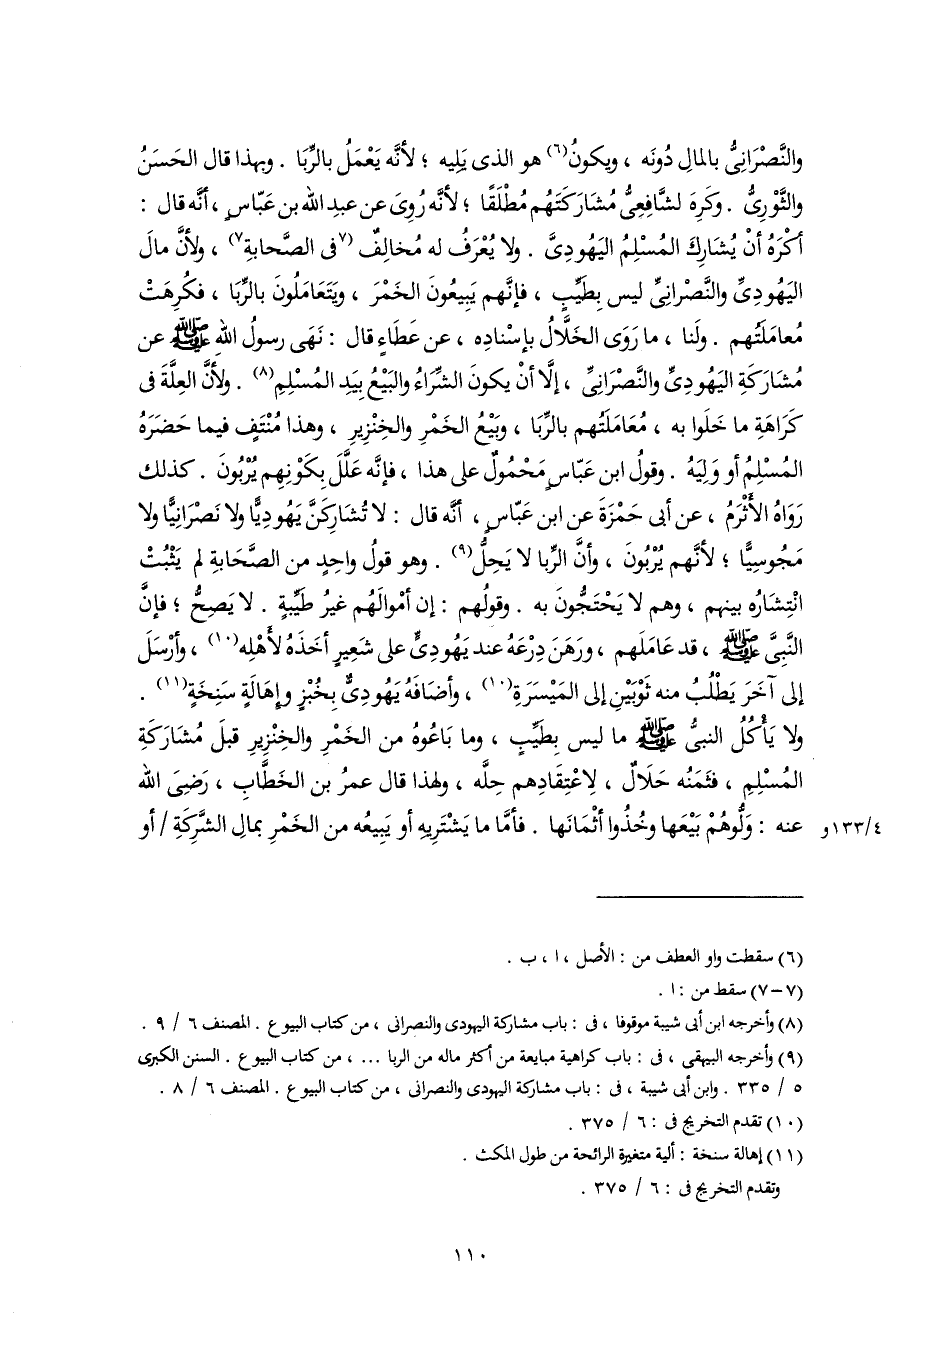 والنَّصْرَانِىُّ بالمالِ دُونَه ، ويكونُ(٦) هو الذى يَلِيه ؛ لأنَّه يَعْمَلُ بالرِّبَا . وبهذا قال الحَسَنُ
والثَّوْرِىُّ . وكَرِهَ لشَّافِعِىُّ مُشَارَكَتَهُم مُطْلَقًا ؛ لأنَّه رُوِىَ عن عبد الله بن عَبّاسٍ ، أنَّه قال :
أكْرَهُ أنْ يُشَارِكَ المُسْلِمُ اليَهُودِىَّ . ولا يُعْرَفُ له مُخالِفٌ (٧فى الصَّحابةِ٧) ، ولأنَّ مالَ
اليَهُودِىِّ والنَّصْرانِىِّ ليس بِطَيِّبٍ ، فإنَّهم يَبِيعُونَ الخَمْرَ ، ويَتَعَامَلُونَ بالرِّبَا ، فكُرِهَتْ
مُعامَلَتُهم . ولَنا ، ما رَوَى الخَلَّالُ بإسْنادِه ، عن عَطَاءٍ قال : نَهَى رسولُ اللهِ ﷺ عن
مُشَارَكَةِ اليَهُودِىِّ والنَّصْرَانِىِّ ، إلَّا أنْ يكونَ الشِّرَاءُ والبَيْعُ بِيَدِ المُسْلِمِ(٨) . ولأنَّ العِلَّةَ فى
كَرَاهَةِ ما خَلَوا به ، مُعَامَلَتُهم بالرِّبَا ، وبَيْعُ الخَمْرِ والخِنْزِيرِ ، وهذا مُنْتَفٍ فيما حَضَرَهُ
المُسْلِمُ أو وَلِيَهُ . وقولُ ابن عَبّاسٍ مَحْمُولٌ على هذا ، فإنَّه عَلَّلَ بِكَوْنِهم يُرْبُونَ . كذلك
رَوَاهُ الأَثْرَمُ ، عن أبى حَمْزَةَ عن ابن عَبّاسٍ ، أنَّه قال : لا تُشَارِكَنَّ يَهُودِيًّا ولا نَصْرَانِيًّا ولا
مَجُوسِيًّا ؛ لأنَّهم يُرْبُونَ ، وأنَّ الرِّبا لا يَحِلُّ(٩) . وهو قولُ واحِدٍ من الصَّحَابةِ لم يَثْبُتْ
انْتِشَارُه بينهم ، وهم لا يَحْتَجُّونَ به . وقولُهم : إن أمْوالَهُم غيرُ طَيِّبةٍ . لا يَصِحُّ ؛ فإنَّ
النَّبِىَّ ﷺ ، قد عَامَلَهم ، ورَهَنَ دِرْعَهُ عند يَهُودِىٍّ على شَعِيرٍ أخَذَهُ لأَهْلِه(١٠) ، وأرْسَلَ
إلى آخَرَ يَطْلُبُ منه ثَوْبَيْنِ إلى المَيْسَرَةِ(١٠) ، وأضَافَهُ يَهُودِىٌّ بخُبْزٍ وإهَالَةٍ سَنِخَةٍ(١١) .
ولا يَأْكُلُ النبىُّ ﷺ ما ليس بِطَيِّبٍ ، وما بَاعُوهُ من الخَمْرِ والخِنْزِيرِ قبلَ مُشَارَكَةِ
المُسْلِمِ ، فثَمَنُه حَلَالٌ ، لِاعْتِقَادِهم حِلَّه ، ولهذا قال عمرُ بن الخَطَّابِ ، رَضِىَ الله
عنه : وَلُّوهُمْ بَيْعَها وخُذُوا أثْمَانَها . فأمَّا ما يَشْتَرِيهِ أو يَبِيعُه من الخَمْرِ بمالِ الشَّرِكَةِ / أو
١٣٣/٤و
(٦) سقطت واو العطف من : الأصل ، ا ، ب .
(٧-٧) سقط من : ا .
(٨) وأخرجه ابن أبى شيبة موقوفا ، فى : باب مشاركة اليهودى والنصرانى ، من كتاب البيوع . المصنف ٦ / ٩ .
(٩) وأخرجه البيهقى ، فى : باب كراهية مبايعة من أكثر ماله من الربا ... ، من كتاب البيوع . السنن الكبرى
٥ / ٣٣٥ . وابن أبى شيبة ، فى : باب مشاركة اليهودى والنصرانى ، من كتاب البيوع . المصنف ٦ / ٨ .
(١٠) تقدم التخريج فى : ٦ / ٣٧٥ .
(١١) إهالة سنخة : ألية متغيرة الرائحة من طول المكث .
وتقدم التخريج فى : ٦ / ٣٧٥ .
١١٠